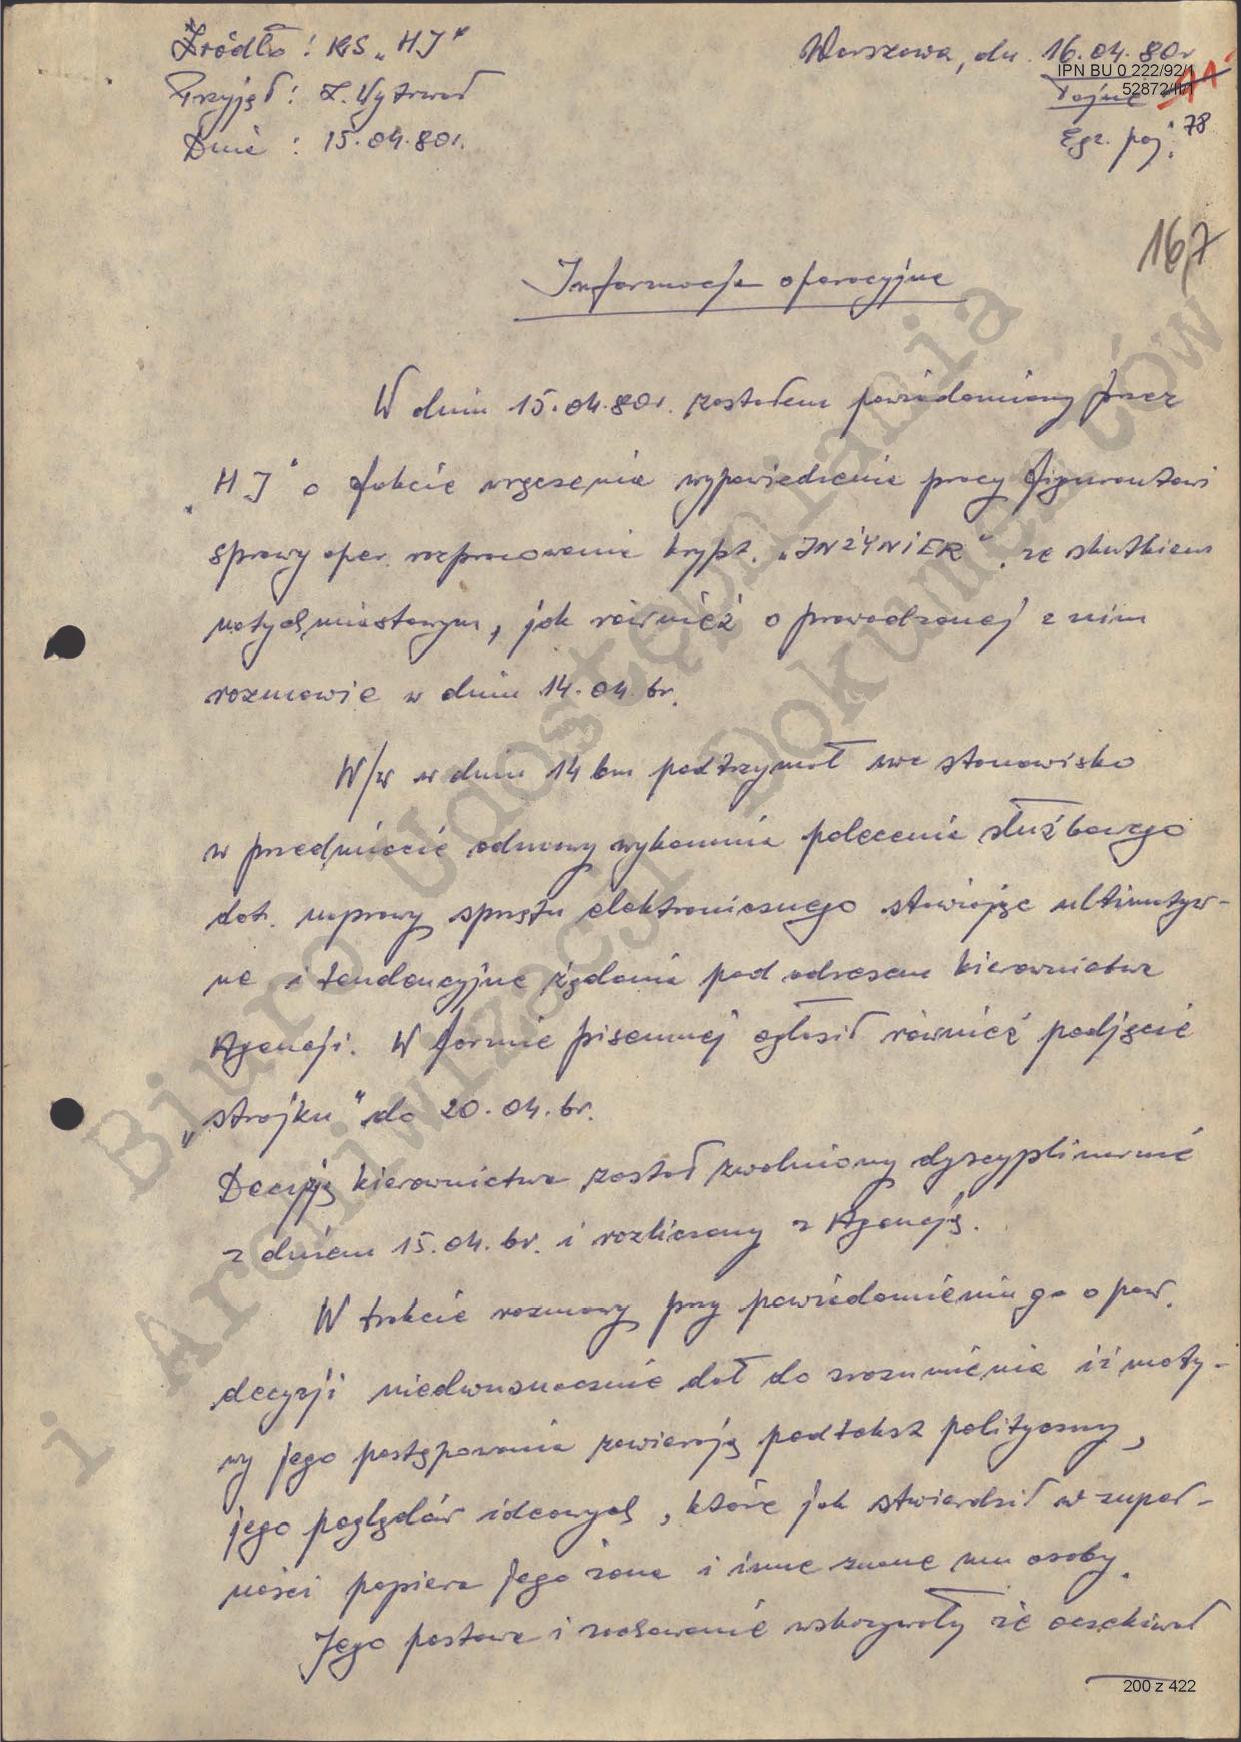 Źródło: KS „HJ"
Przyjął: Z. Wytrwał
Dnia: 15.04.80r.
Warszawa, dn. 16.04.80r
IPN BU 0 222/92/1
52872/II/1
Tajne
Egz. poj.
78
167
Informacja operacyjna
W dniu 15.04.80r. zostałem powiadomiony przez
„HJ" o fakcie wręczenia wypowiedzenia pracy figurantowi
sprawy oper. rozpracowania krypt. „INŻYNIER", ze skutkiem
natychmiastowym, jak również o prowadzonej z nim
rozmowie w dniu 14.04. br.
W/w w dniu 14 bm podtrzymał swe stanowisko
w przedmiocie odmowy wykonania polecenia służbowego
dot. naprawy sprzętu elektronicznego stawiając ultimatyw-
ne i tendencyjne żądania pod adresem kierownictwa
Agencji. W formie pisemnej ogłosił również podjęcie
„strajku" do 20.04. br.
Decyzją kierownictwa został zwolniony dyscyplinarnie
z dniem 15.04. br. i rozliczony z Agencją.
W trakcie rozmowy przy powiadomieniu go o pow.
decyzji niedwuznacznie dał do zrozumienia iż moty-
wy jego postępowania zawierają podtekst polityczny,
jego poglądów ideowych, które jak stwierdził w zupeł-
ności popiera jego żona i inne znane mu osoby.
Jego postawa i zachowanie wskazywały że oczekiwał
200 z 422
Biuro Udostępniania
i Archiwizacji Dokumentów